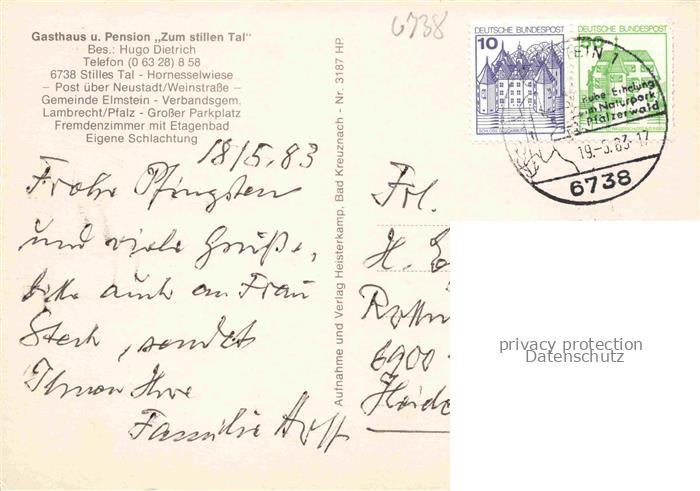 6738
Gasthaus u. Pension „Zum stillen Tal“
Bes.: Hugo Dietrich
Telefon (0 63 28) 8 58
6738 Stilles Tal - Hornesselwiese
– Post über Neustadt/Weinstraße –
Gemeinde Elmstein - Verbandsgem.
Lambrecht/Pfalz - Großer Parkplatz
Fremdenzimmer mit Etagenbad
Eigene Schlachtung
18/5.83
Frohe Pfingsten
und viele Grüße,
bitte auch an Frau
sendet
Ihnen Ihre
Familie
Aufnahme und Verlag Heisterkamp, Bad Kreuznach - Nr. 3187 HP
DEUTSCHE BUNDESPOST
10
DEUTSCHE BUNDESPOST
50
1
ruhe Erholung
im Naturpark
Pfälzerwald
19.-5.83-17
6738
Frl.
H.
6900
Heide
privacy protection
Datenschutz